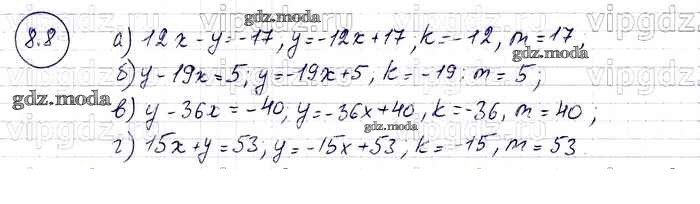 8.8 а) 12x - y = -17, y = -12x + 17; k = -12, m = 17,
б) y - 19x = 5; y = -19x + 5, k = -19; m = 5;
в) y - 36x = -40, y = -36x + 40, k = -36, m = 40;
г) 15x + y = 53; y = -15x + 53; k = -15, m = 53.
gdz.moda
gdz.moda
gdz.moda
gdz.moda
gdz.moda
vipgdz
vipgdz.ru
vipgdz